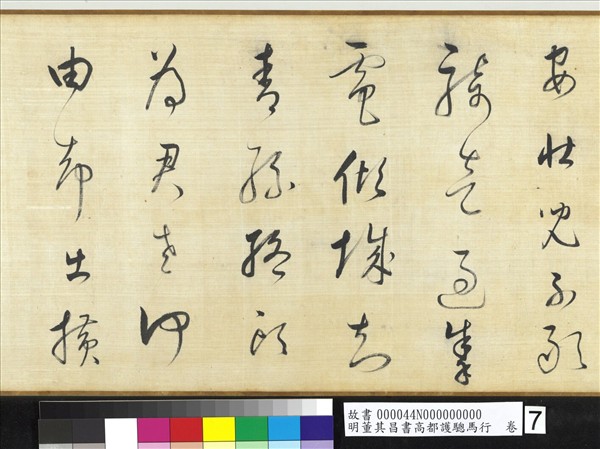 安壯兒不敢
騎走過掣
電傾城知
青絲絡頭
為君老何
由却出橫
故書 000044N000000000
明董其昌書高都護驄馬行 卷
7